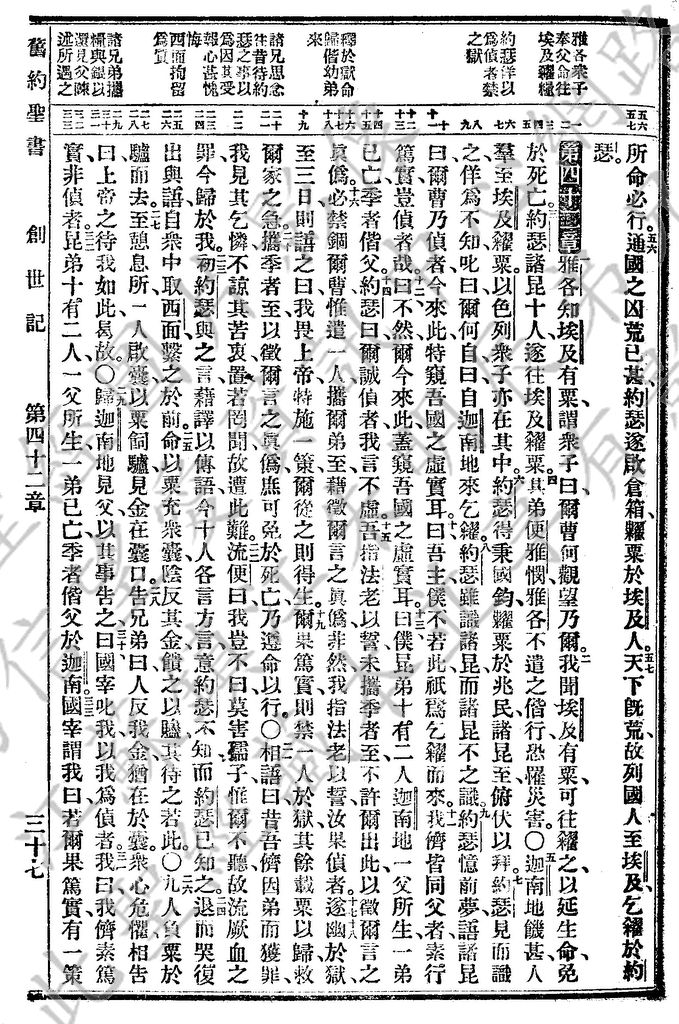 所命必行。通國之凶荒已甚、約瑟遂啟倉箱、糶粟於埃及人。天下旣荒、故列國人至埃及、乞糴於約
瑟。
第四十二章 雅各知埃及有粟、謂衆子曰、爾曹何觀望乃爾。我聞埃及有粟、可往糴之、以延生命、免
於死亡。約瑟諸昆十人、遂往埃及糴粟。其弟便雅憫、雅各不遣之偕行、恐罹災害。〇迦南地饑、甚人
羣至埃及糴粟、以色列衆子亦在其中。約瑟得秉國鈞、糶粟於兆民、諸昆至、俯伏以拜、約瑟見而識
之、佯爲不知、叱曰、爾何自、曰、自迦南地來乞糴。約瑟雖識諸昆、而諸昆不之識。約瑟憶前夢、語諸昆
曰、爾曹乃偵者、今來此、特窺吾國之虛實耳。曰、吾主、僕不若此、祇爲乞糴而來、我儕皆同父者、素行
篤實、豈偵者哉。曰、不然、爾今來此、蓋窺吾國之虛實耳。曰、僕昆弟十有二人、迦南地一父所生、一弟
已亡、季者偕父。約瑟曰、爾誠偵者、我言不虛。吾指法老以誓、未攜季者至、不許爾出此、以徵爾言之
眞僞、必禁錮爾曹、惟遣一人、攜爾弟至、藉徵爾言之眞僞、非然、我指法老以誓、汝果偵者。遂幽於獄
至三日、則語之曰、我畏上帝、特施一策、爾從之則得生。爾果篤實、則禁一人於獄、其餘載粟以歸、救
爾家之急、攜季者至、以徵爾言之眞僞、庶可免於死亡、乃遵命以行。〇相語曰、昔吾儕因弟而獲罪、
我見其乞憐、不諒其苦衷、置若罔聞、故遭此難。流便曰、我豈不曰、莫害孺子、惟爾不聽、故流厥血之
罪、今歸於我。初約瑟與之言、藉譯以傳語、今十人各言方言、意約瑟不知、而約瑟已知之、退而哭、復
出與語、自衆中取西面、繫之於前、命以粟充衆囊、陰反其金、餽之以贐、其待之若此。〇九人負粟於
驢而去、至憩息所、一人啟囊、以粟飼驢、見金在囊口、告兄弟曰、人反我金、猶在於囊、衆心危懼、相告
曰、上帝之待我如此、曷故。〇歸迦南地、見父、以其事告之曰、國宰叱我、以我爲偵者、我曰、我儕素篤
實、非偵者、昆弟十有二人、一父所生、一弟已亡、季者偕父於迦南、國宰謂我曰、若爾果篤實、有一策
雅各衆子
奉父命往
埃及糴糧
約瑟佯以
爲偵者禁
之獄
釋於獄命
歸偕幼弟
來
諸兄思念
往昔待約
瑟之事以
爲因其受
報心甚愧
西面拘留
爲質
諸兄弟攜
糧與銀以
還見父陳
述所遇之
舊約聖書 創世記 第四十二章 三十七